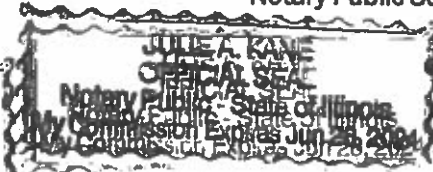 Notary Public
JULIE A. KANE
OFFICIAL SEAL
Notary Public - State of Illinois
My Commission Expires Jun